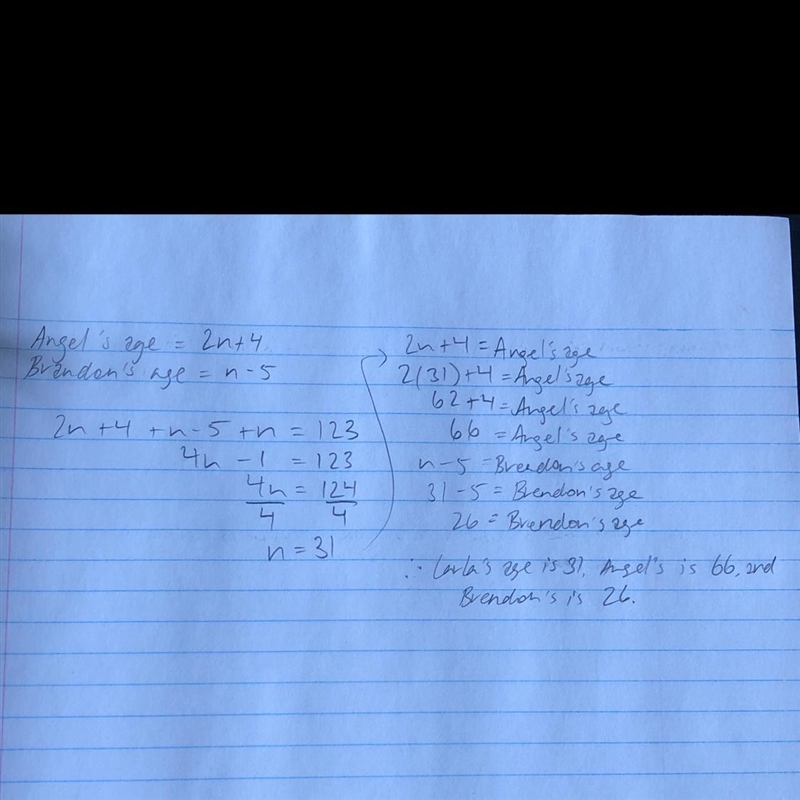 Angel's age = 2n+4
Brendon's age = n-5
2n+4 +n-5 +n = 123
4n -1 = 123
4n = 124
4 4
n = 31
2n+4 = Angel's age
2(31)+4 = Angel's age
62+4 = Angel's age
66 = Angel's age
n-5 = Brendon's age
31-5 = Brendon's age
26 = Brendon's age
∴ Carla's age is 31, Angel's is 66, and
Brendon's is 26.